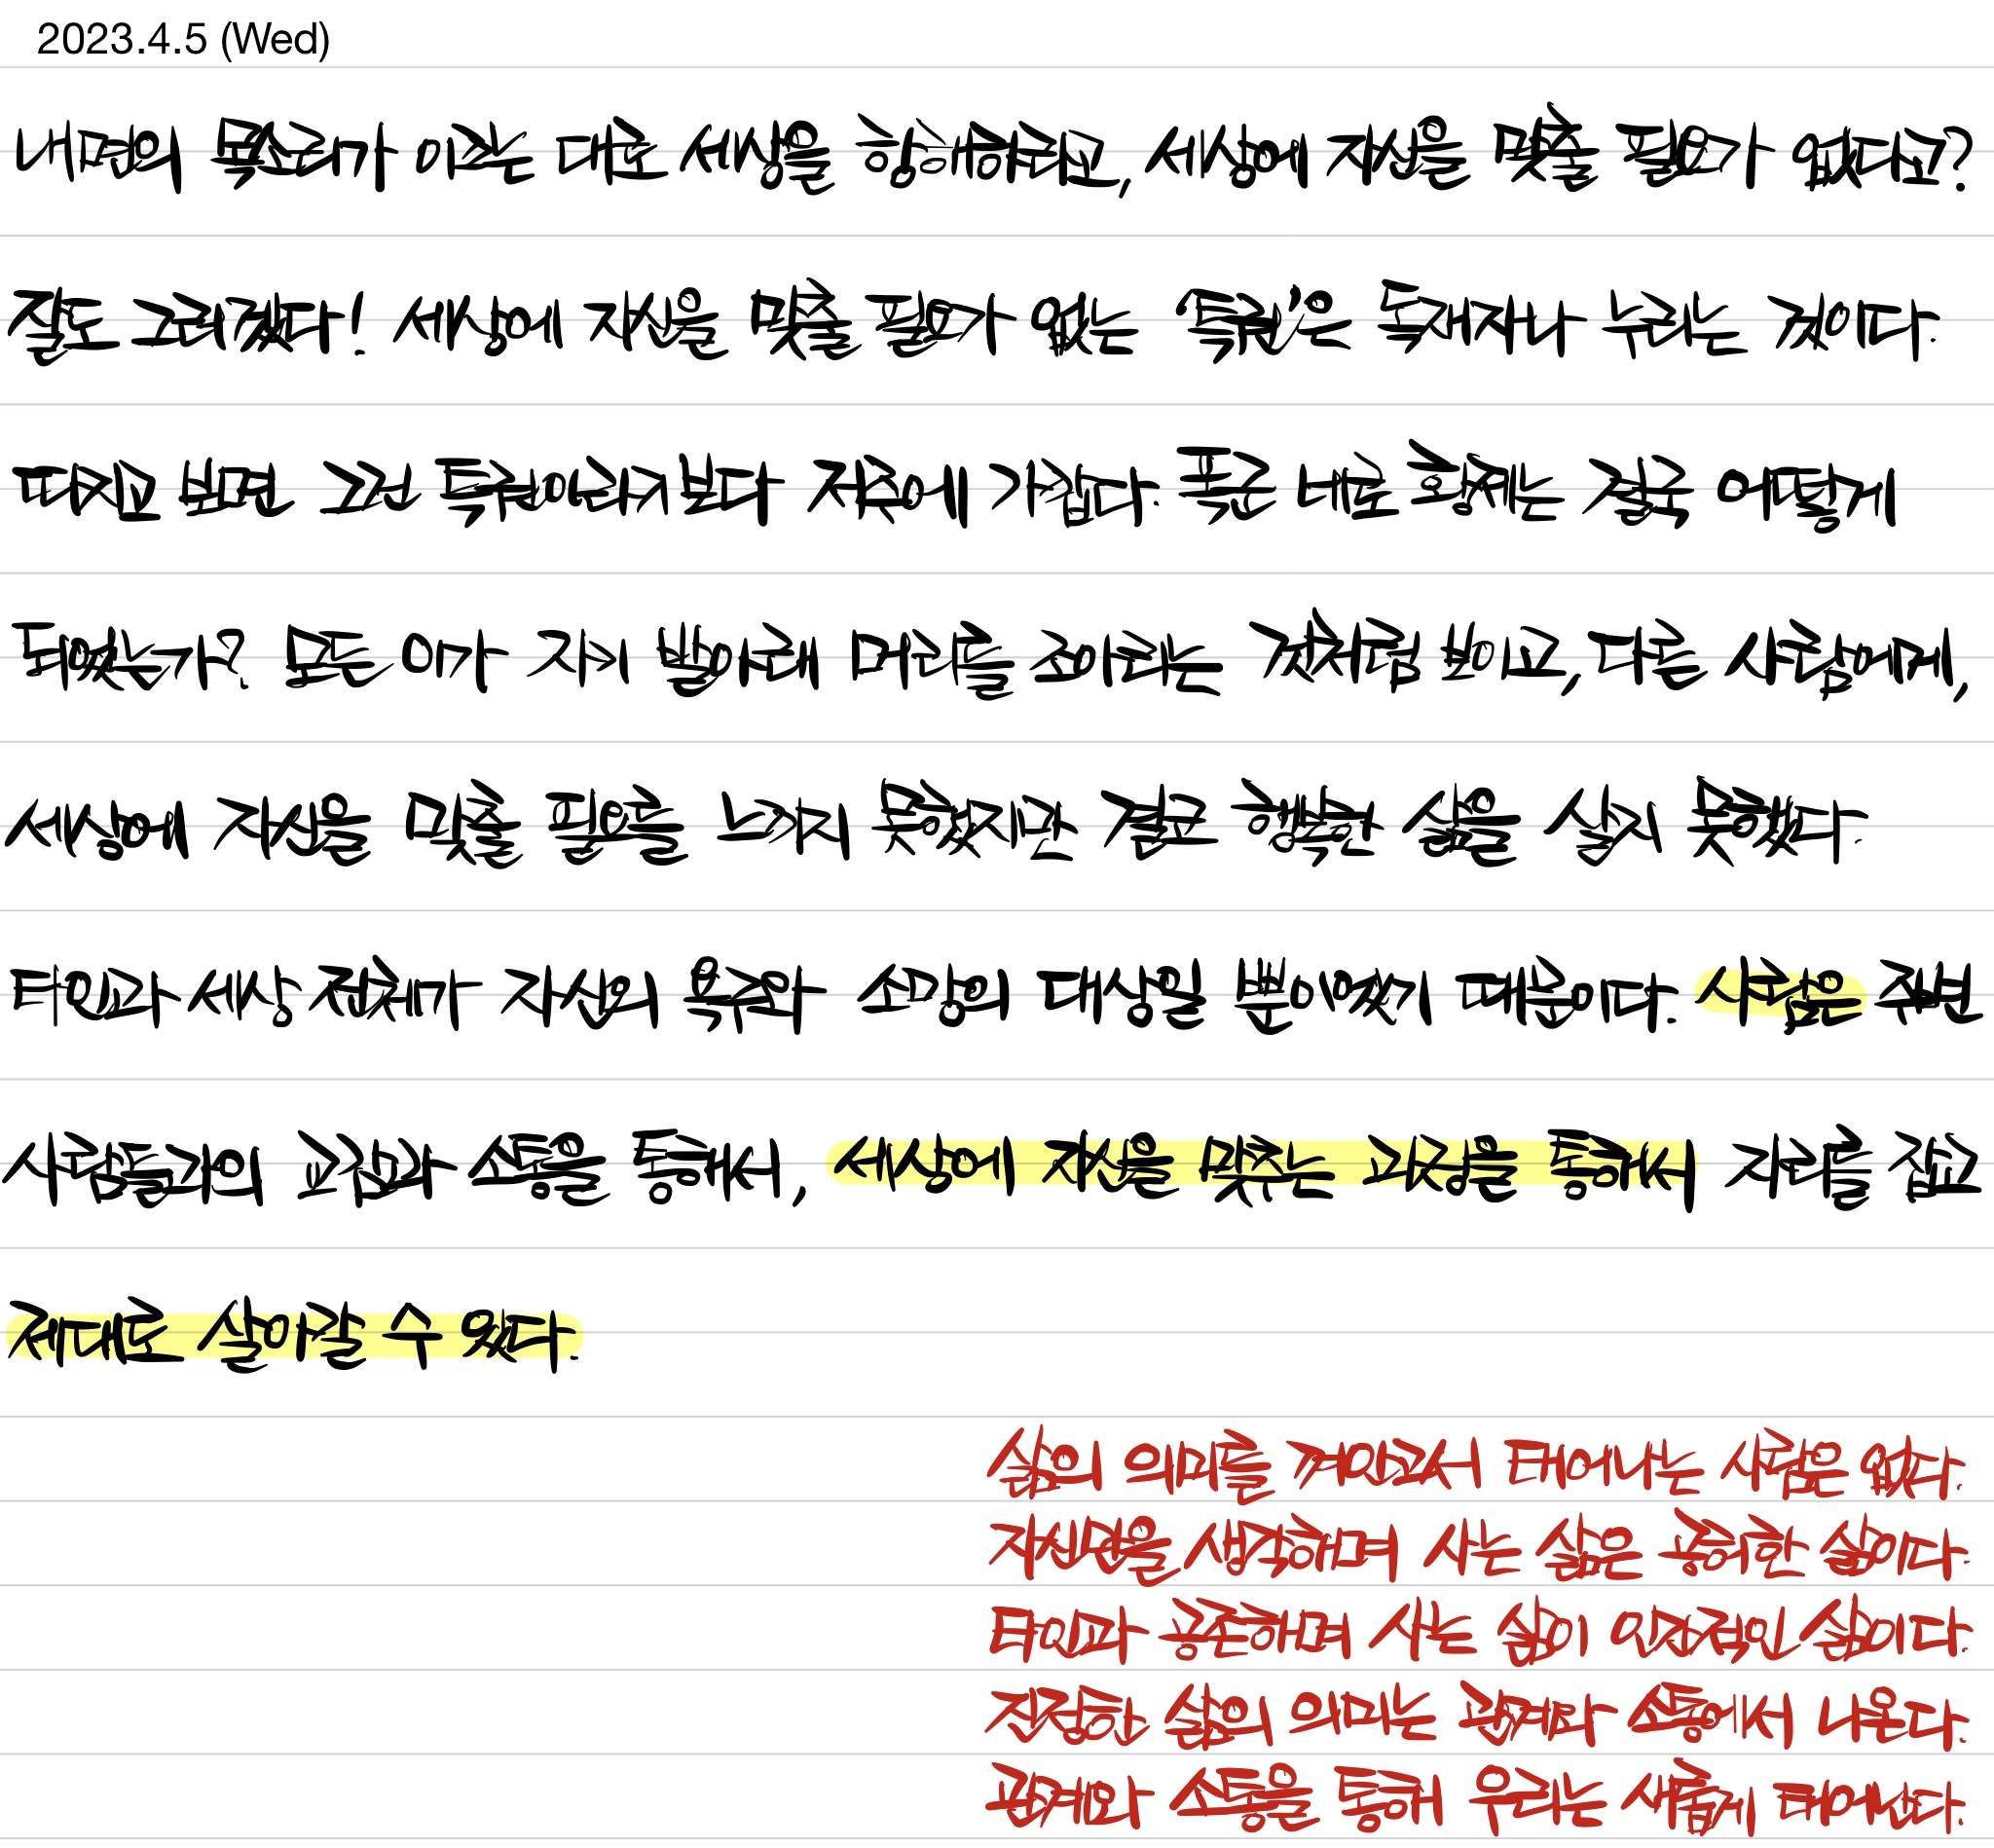 2023.4.5 (Wed)
내면의 목소리가 이끄는 대로 세상을 형성하라고, 세상에 자신을 맞출 필요가 없다고?
잘도 그래겠다! 세상에 자신을 맞출 필요가 없는 “특권”은 독재자나 누리는 것이다.
따지고 보면 그건 특권이라기보다 저주에 가깝다. 폭군 네로 황제는 결국 어떻게
되었는가? 모든 이가 자기 발아래 머리를 조아리는 것처럼 보이고, 다른 사람에게,
세상에 자신을 맞출 필요를 느끼지 못했지만 결코 행복한 삶을 살지 못했다.
타인과 세상 전체가 자신의 욕구와 소망의 대상일 뿐이었기 때문이다. 사람은 주변
사람들과의 교감과 소통을 통해서, 세상에 자신을 맞추는 과정을 통해서 자리를 잡고
제대로 살아갈 수 있다.
삶의 의미를 껴안고서 태어나는 사람은 없다.
자신만을 생각하며 사는 삶은 공허한 삶이다.
타인과 공존하며 사는 삶이 이상적인 삶이다.
진정한 삶의 의미는 관계와 소통에서 나온다.
관계와 소통을 통해 우리는 새롭게 태어난다.